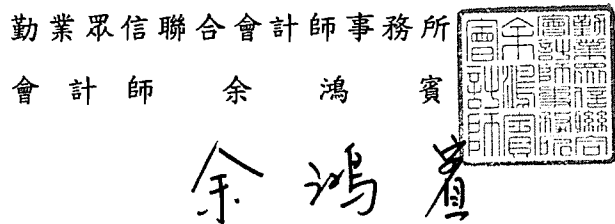 勤業眾信聯合會計師事務所
會計師 余鴻賓
勤業眾信聯合
會計師事務所
余鴻賓
會計師
余鴻賓